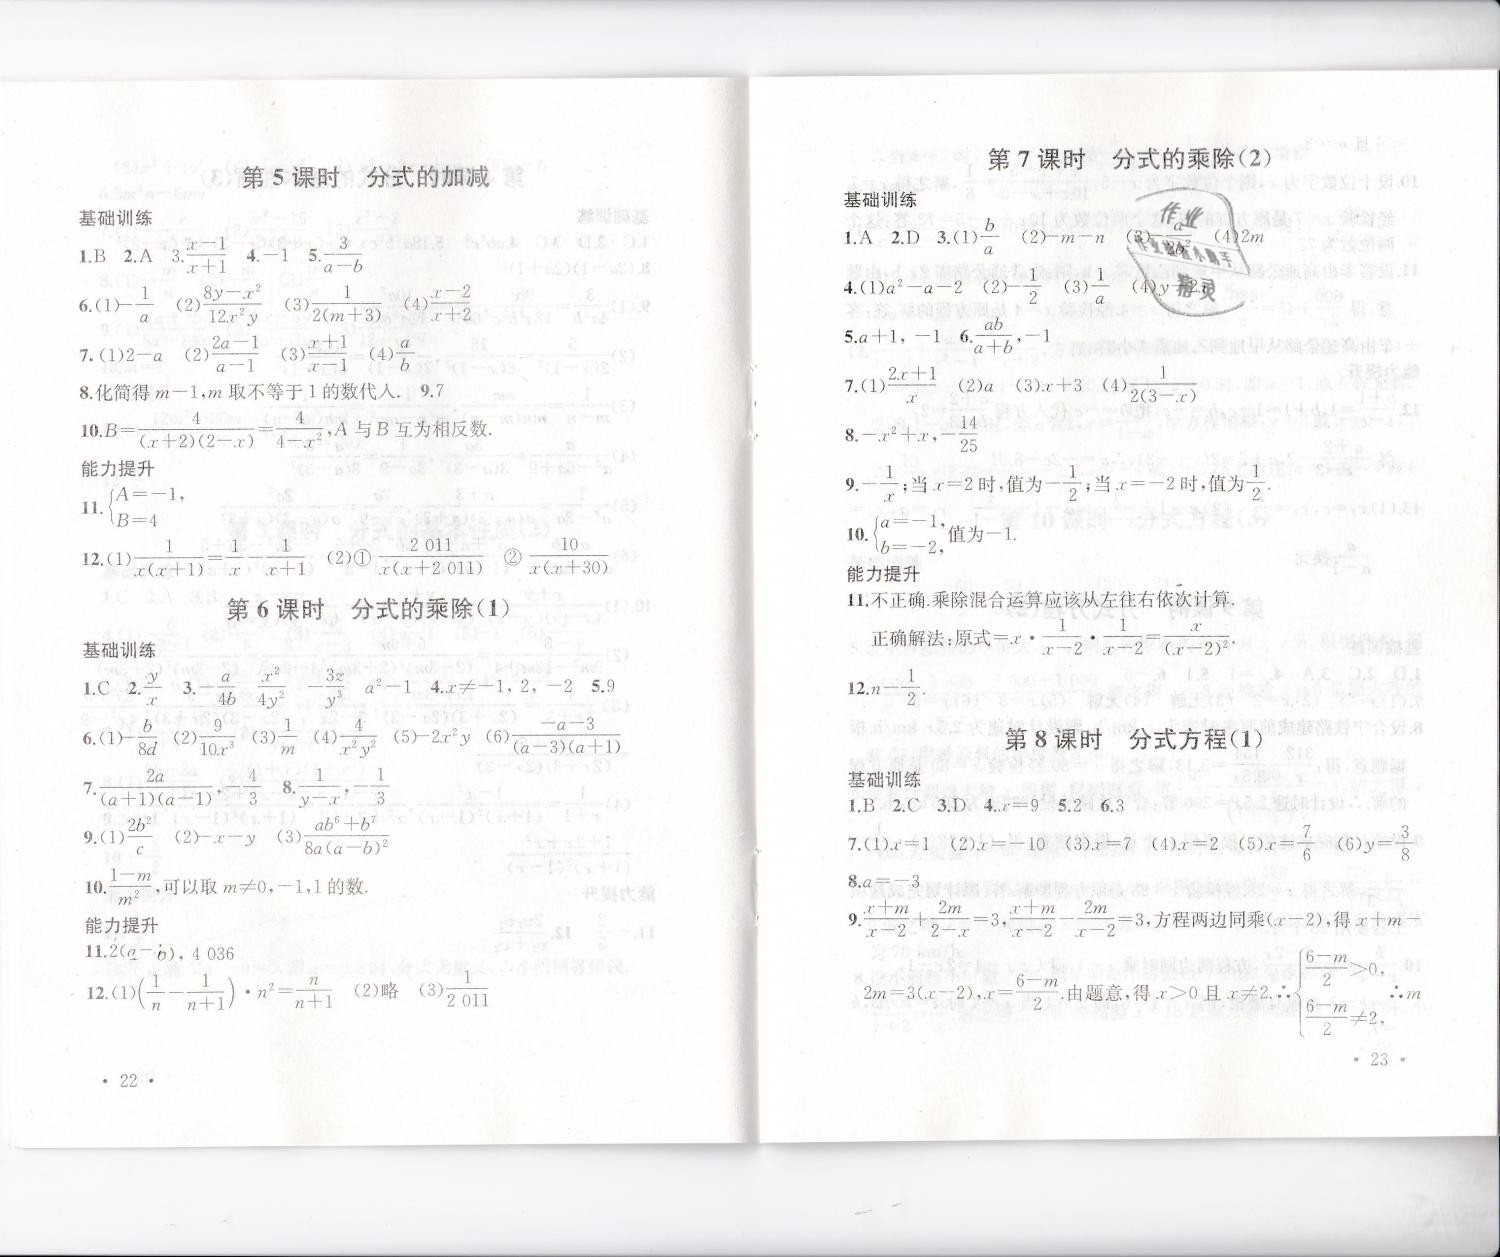 第 5 课时　分式的加减
基础训练
1.B　2.A　3.\frac{x-1}{x+1}　4.-1　5.\frac{3}{a-b}
6.(1)-\frac{1}{a}　(2)\frac{8y-x^2}{12x^2y}　(3)\frac{1}{2(m+3)}　(4)\frac{x-2}{x+2}
7.(1)2-a　(2)\frac{2a-1}{a-1}　(3)\frac{x+1}{x-1}　(4)\frac{a}{b}
8.化简得 m-1,m 取不等于 1 的数代人.　9.7
10.B=-\frac{4}{(x+2)(2-x)}=-\frac{4}{4-x^2},A 与 B 互为相反数.
能力提升
11.{A=-1,
B=4
12.(1)\frac{1}{x(x+1)}=\frac{1}{x}-\frac{1}{x+1}　(2)①\frac{2 011}{x(x+2 011)}　②\frac{10}{x(x+30)}
第 6 课时　分式的乘除(1)
基础训练
1.C　2.\frac{y}{x}　3.-\frac{a}{4b}　\frac{x^2}{4y^2}　-\frac{3z}{y^3}　a^2-1　4.x≠-1, 2, -2　5.9
6.(1)-\frac{b}{8d}　(2)\frac{9}{10x^3}　(3)\frac{1}{m}　(4)\frac{4}{x^2y^2}　(5)-2x^2y　(6)\frac{-a-3}{(a-3)(a+1)}
7.\frac{2a}{(a+1)(a-1)},\frac{4}{3}　8.\frac{1}{y-x},-\frac{1}{3}
9.(1)\frac{2b^2}{c}　(2)-x-y　(3)\frac{ab^6+b^7}{8a(a-b)^2}
10.\frac{1-m}{m^2},可以取 m≠0,-1,1 的数.
能力提升
11.2(a-b), 4 036
12.(1)(\frac{1}{n}-\frac{1}{n+1})·n^2=\frac{n}{n+1}　(2)略　(3)\frac{1}{2 011}
· 22 ·
第 7 课时　分式的乘除(2)
基础训练
1.A　2.D　3.(1)\frac{b}{a}　(2)-m-n　(4)2m
4.(1)a^2-a-2　(2)-\frac{1}{2}　(3)-\frac{1}{a}
5.a+1, -1　6.\frac{ab}{a+b},-1
7.(1)\frac{2x+1}{x}　(2)a　(3)x+3　(4)-\frac{1}{2(3-x)}
8.-x^2+x,-\frac{14}{25}
9.-\frac{1}{x};当 x=2 时,值为-\frac{1}{2};当 x=-2 时,值为\frac{1}{2}.
10.{a=-1,
b=-2,值为-1.
能力提升
11.不正确.乘除混合运算应该从左往右依次计算.
正确解法:原式=x·\frac{1}{x-2}·\frac{1}{x-2}=\frac{x}{(x-2)^2}.
12.n-\frac{1}{2}.
第 8 课时　分式方程(1)
基础训练
1.B　2.C　3.D　4.x=9　5.2　6.3
7.(1)x=1　(2)x=-10　(3)x=7　(4)x=2　(5)x=\frac{7}{6}　(6)y=-\frac{3}{8}
8.a=-3
9.\frac{x+m}{x-2}+\frac{2m}{2-x}=3,\frac{x+m}{x-2}-\frac{2m}{x-2}=3,方程两边同乘(x-2),得 x+m-
2m=3(x-2),x=\frac{6-m}{2}.由题意,得 x>0 且 x≠2.∴{\frac{6-m}{2}>0,
\frac{6-m}{2}≠2,　∴m
· 23 ·
作业
作业检查小助手
精灵